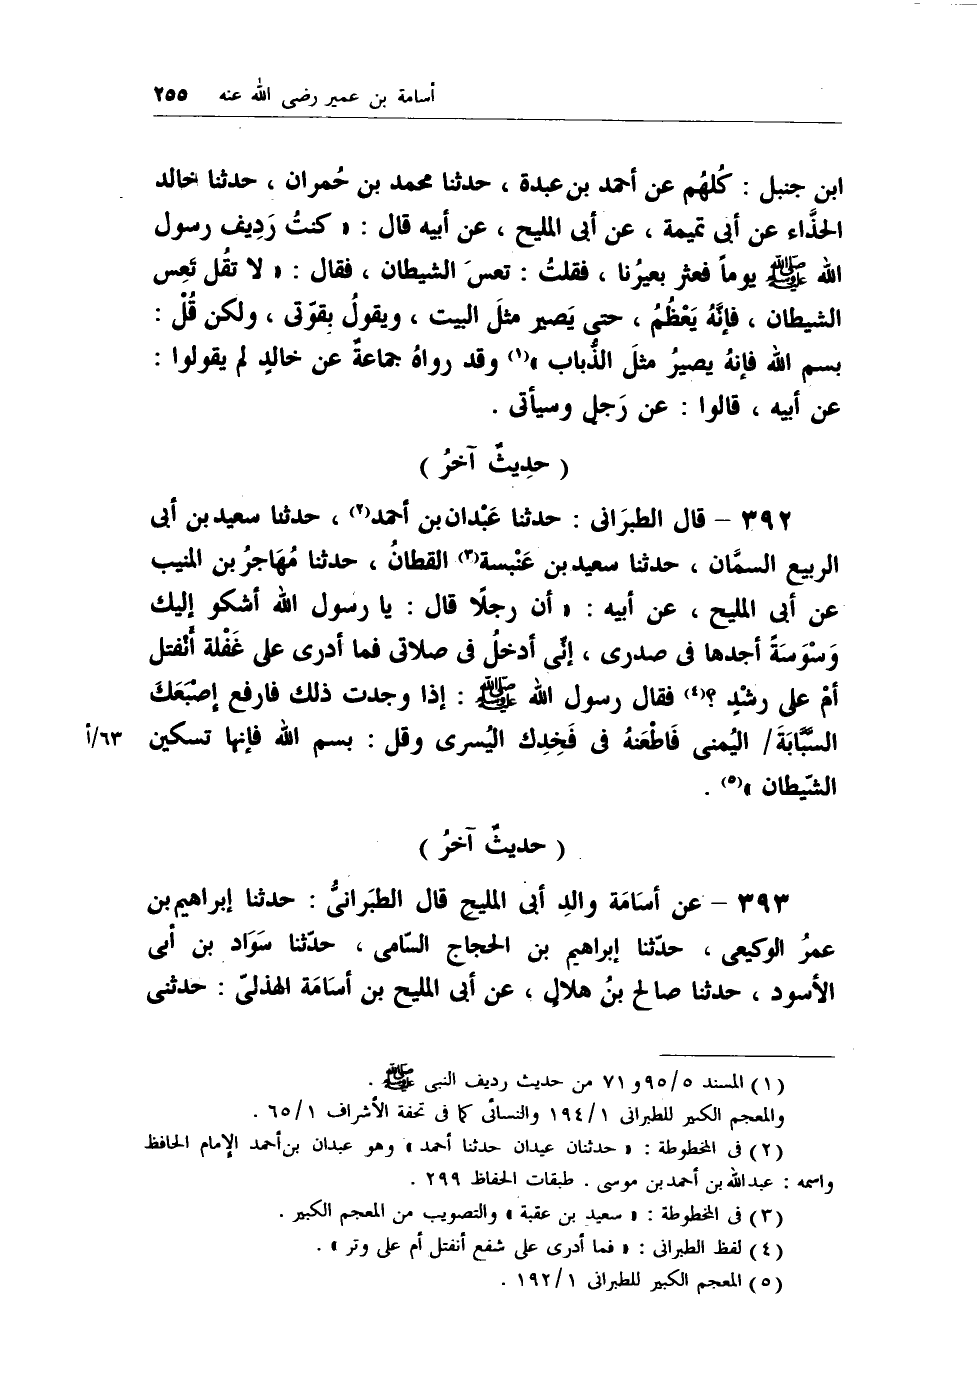 أسامة بن عمير رضى الله عنه ٢٥٥
ابن جنبل : كُلهُم عن أحمد بن عبدة ، حدثنا محمد بن حُمران ، حدثنا خالد
الحذَّاء عن أبى تميمة ، عن أبى المليح ، عن أبيه قال : « كنتُ رَدِيف رسول
الله ﷺ يوماً فعثر بعيرُنا ، فقلتُ : تعسَ الشيطان ، فقال : « لا تقُل تَعِس
الشيطان ، فإنَّهُ يَعْظُمُ ، حتى يَصير مثلَ البيت ، ويقولُ بقوّتى ، ولكن قُلْ :
بسم الله فإنهُ يصيرُ مثلَ الذُّباب »(١) وقد رواهُ جماعةٌ عن خالدٍ لم يقولوا :
عن أبيه ، قالوا : عن رَجلٍ وسيأتى .
( حدِيثٌ آخرُ )
٣٩٢ – قال الطبرَانى : حدثنا عَبْدان بن أحمد(٢) ، حدثنا سعيد بن أبى
الربيع السمَّان ، حدثنا سعيد بن عَنْبسة(٣) القطانُ ، حدثنا مُهَاجرُ بن المنيب
عن أبى المليح ، عن أبيه : « أن رجلًا قال : يا رسول الله أشكو إليك
وَسْوَسَةً أجدها فى صدرى ، إنّى أدخلُ فى صلاتى فما أدرى على غَفْلة أَنْفتل
أمْ على رشْدٍ ؟(٤) فقال رسول الله ﷺ : إذا وجدت ذلك فارفع إصْبَعَكَ
السَّبَّابَةَ / اليُمنى فَاطْعَنهُ فى فَخِدِك اليُسرى وقل : بسم الله فإنها تسكين ٦٣/أ
الشّيطان »(٥) .
( حديثٌ آخرُ )
٣٩٣ – عن أسَامَة والدِ أبى المليحِ قال الطبَرانىُّ : حدثنا إبراهيم بن
عمرُ الوكيعى ، حدّثنا إبراهيم بن الحجاج السّامى ، حدّثنا سَوَاد بن أبى
الأسود ، حدثنا صالح بنُ هلالٍ ، عن أبى المليح بن أسَامَة الهذلىّ : حدثنى
(١) المسند ٩٥/٥ و ٧١ من حديث رديف النبى ﷺ .
والمعجم الكبير للطبرانى ١٩٤/١ والنسائى كما فى تحفة الأشراف ٦٥/١ .
(٢) فى المخطوطة : « حدثنان عيدان حدثنا أحمد » وهو عبدان بن أحمد الإمام الحافظ
واسمه : عبد الله بن أحمد بن موسى . طبقات الحفاظ ٢٩٩ .
(٣) فى المخطوطة : « سعيد بن عقبة » والتصويب من المعجم الكبير .
(٤) لفظ الطبرانى : « فما أدرى على شفع أنفتل أم على وتر » .
(٥) المعجم الكبير للطبرانى ١٩٢/١ .